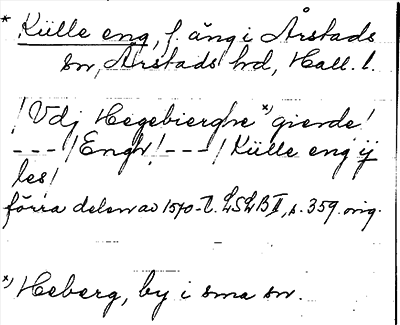 * Külle eng, f. äng i Årstads
sn, Årstads hd, Hall. l.
/Vdj Hegebierghe *) gierde/
---/Enger/---/Külle eng ij
les/
förra delen av 1570-t. LSLB II, s. 359. orig.
*) Heberg, by i sma sn.